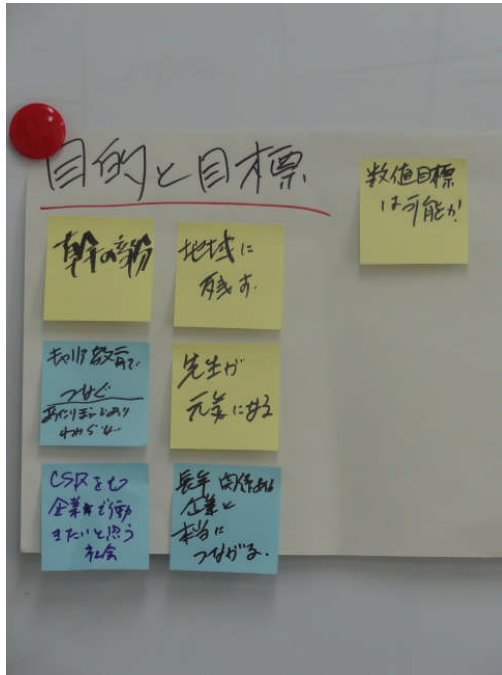 目的と目標
数値目標
は可能か
幹の部分
地域に
残す.
キャリア教育で
つなぐ
先生が
元気になる
CSRをむ
企業で働
きたいと思う
社会
長年 関係ある
企業と
本当に
つながる.